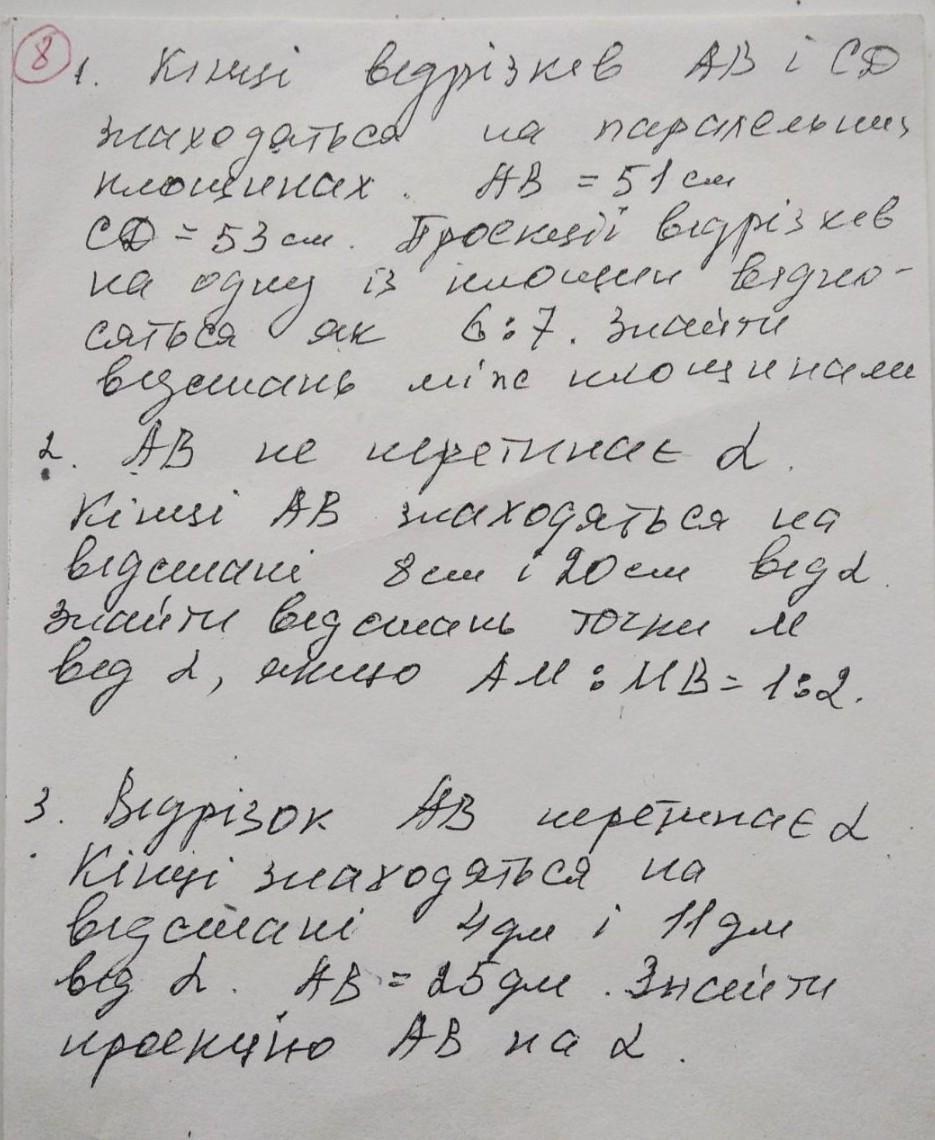 8
1. Кінці відрізків AB і CD
знаходяться на паралельних
площинах. AB = 51 см
CD = 53 см. Проекції відрізків
на одну із площин відно-
сяться як 6:7. Знайти
відстань між площинами
2. AB не перетинає α.
Кінці AB знаходяться на
відстані 8 см і 20 см від α.
Знайти відстань точки M
від α, якщо AM : MB = 1:2.
3. Відрізок AB перетинає α
Кінці знаходяться на
відстані 4 дм і 11 дм
від α. AB = 25 дм. Знайти
проекцію AB на α.